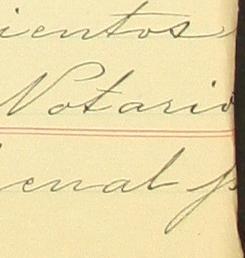 ientos
Notario
enal p